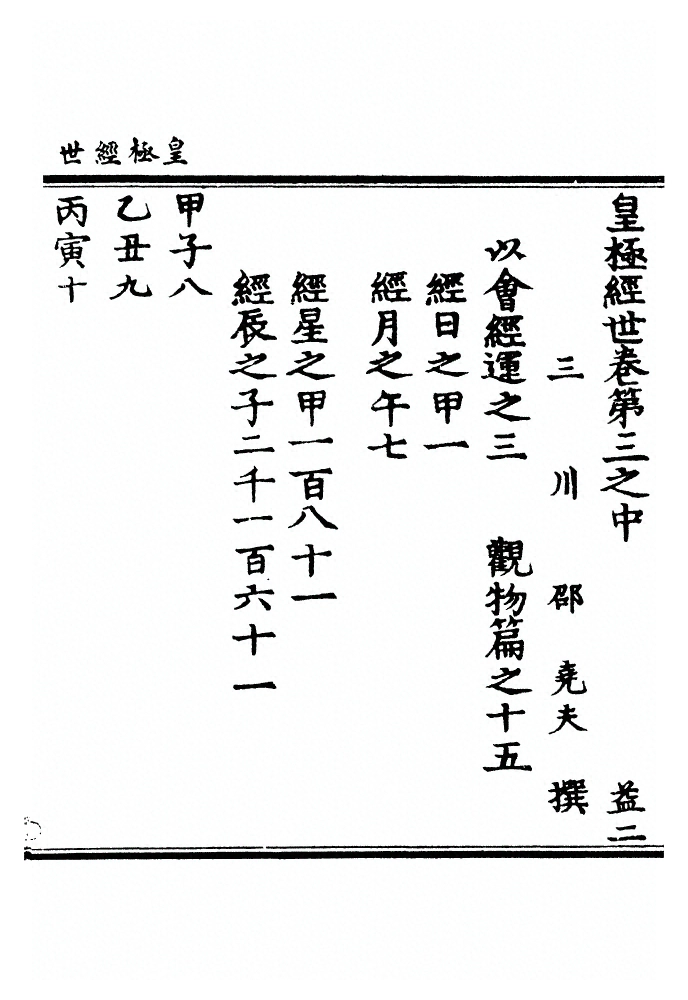 皇極經世
皇極經世卷第三之中 益二
三川 邵堯夫 撰
以會經運之三 觀物篇之十五
經日之甲一
經月之午七
經星之甲一百八十一
經辰之子二千一百六十一
甲子八
乙丑九
丙寅十